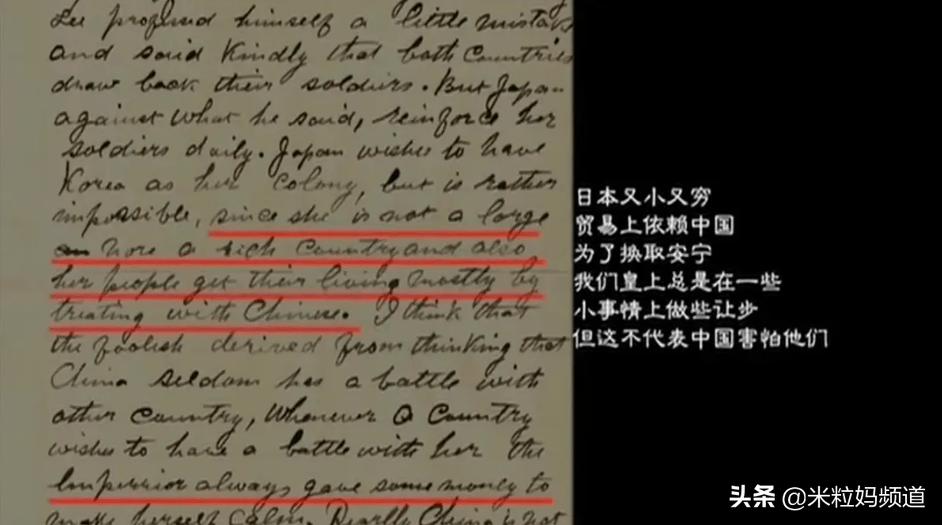 Lee profined himself a little mistak
and said Kindly that both Countries
draw back their soldiers. But Japan
against what he said, reinforce her
soldiers daily. Japan wishes to have
Korea as her Colony, but is rather
impossible, since she is not a large
nore a rich Country and also
her people get their living mostly by
treating with Chinese. I think that
the foolish derived from thinking that
China seldom has a battle with
other Country, Whenever a Country
wishes to have a battle with her the
Imperrior always gave some money to
make herself Calm. Really China is not
日本又小又穷
贸易上依赖中国
为了换取安宁
我们皇上总是在一些
小事情上做些让步
但这不代表中国害怕他们
头条 @米粒妈频道